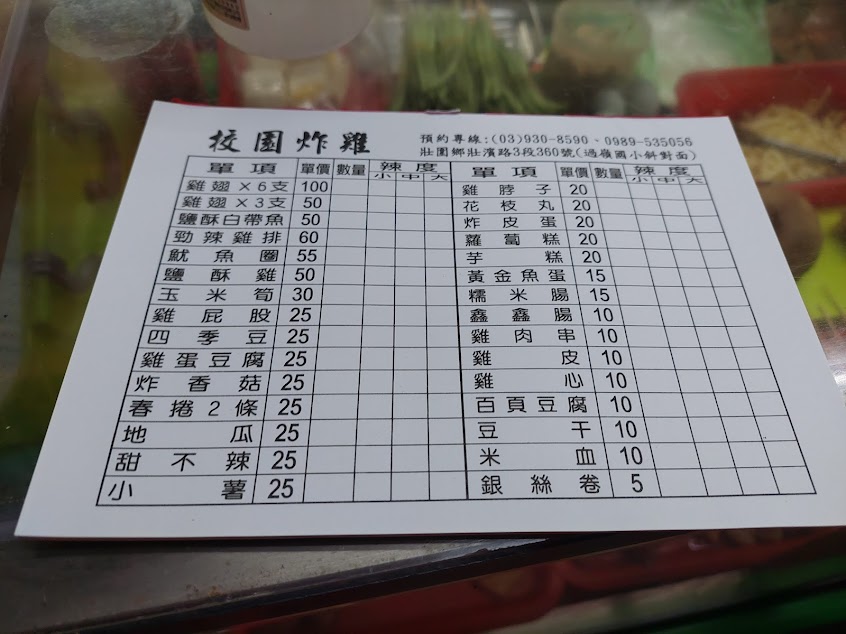 校園炸雞
預約專線:(03)930-8590、0989-535056
壯圍鄉壯濱路3段360號(過嶺國小斜對面)
單項 單價 數量 辣度 小 中 大
雞翅×6支 100
雞翅×3支 50
鹽酥白帶魚 50
勁辣雞排 60
魷魚圈 55
鹽酥雞 50
玉米筍 30
雞屁股 25
四季豆 25
雞蛋豆腐 25
炸香菇 25
春捲2條 25
地瓜 25
甜不辣 25
小薯 25
單項 單價 數量 辣度 小 中 大
雞脖子 20
花枝丸 20
炸皮蛋 20
蘿蔔糕 20
芋糕 20
黃金魚蛋 15
糯米腸 15
鑫鑫腸 10
雞肉串 10
雞皮 10
雞心 10
百頁豆腐 10
豆干 10
米血 10
銀絲卷 5